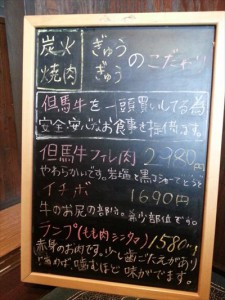 炭火焼肉 ぎゅうぎゅうのこだわり
但馬牛を一頭買いしてる為
安全・安心なお食事を提供します。
但馬牛フィレ肉 2980円
やわらかいです。岩塩と黒こしょうでどうぞ
イチボ 1690円
牛のお尻の部分。希少部位です。
ランプ(もも肉シンタマ) 1580円
赤身のお肉です。少し歯ごたえがあり
噛めば、噛むほど味がでます。